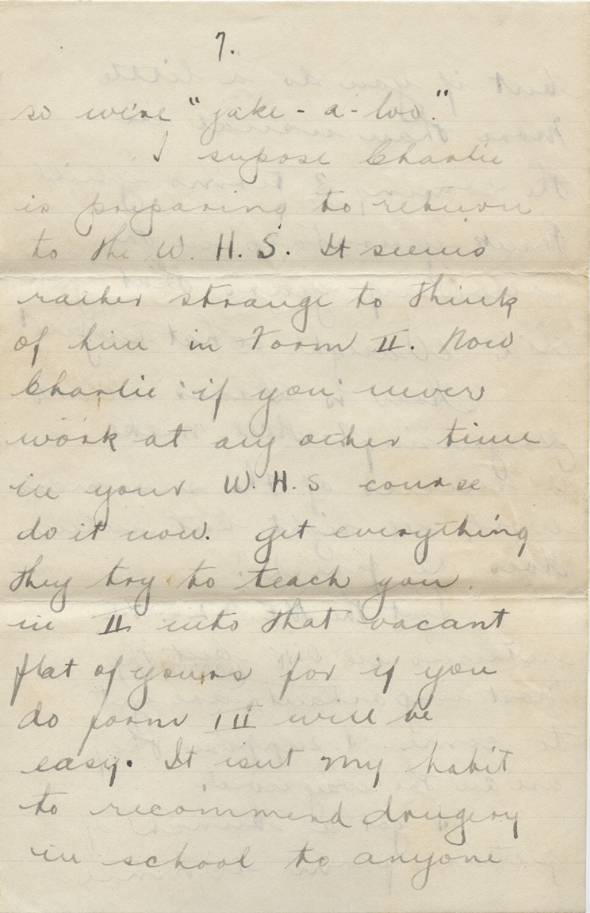 7.
so we're "jake-a-loo."
I supose Charlie
is preparing to return
to the W. H. S. It seems
rather strange to think
of him in Form II. Now
Charlie if you never
work at any other time
in your W. H. S course
do it now. get everything
they try to teach you
in II into that vacant
flat of yours for if you
do form III will be
easy. It isn't my habit
to recommend drugery
in school to anyone